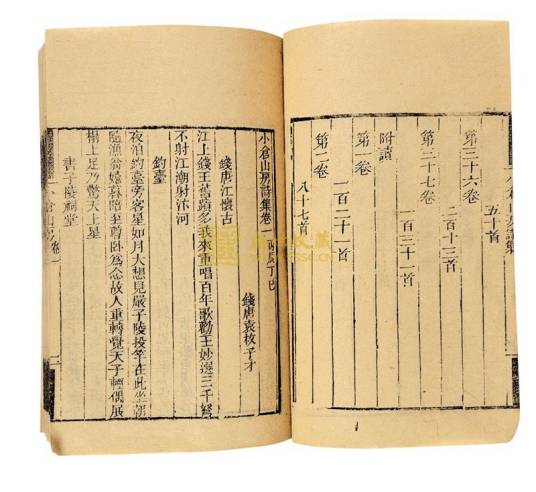 小倉山房詩集
五十首
第三十六卷
二百十三首
第三十七卷
一百三十一首
附
第一卷
一百二十一首
第二卷
八十七首
小倉山房詩集卷一 丙辰丁巳
錢唐袁枚子才
錢唐江懷古
江上錢王舊蹟多我來重唱百年歌勸王妙選三千弩
不射江潮射汴河
釣臺
夜泊釣臺旁客星如月大想見嚴子陵投竿在此坐朝
隨漁翁嬉暮陪至尊臥爲念故人重轉覺天子輕偶展
榻上足乃驚天上星
書子陵祠堂